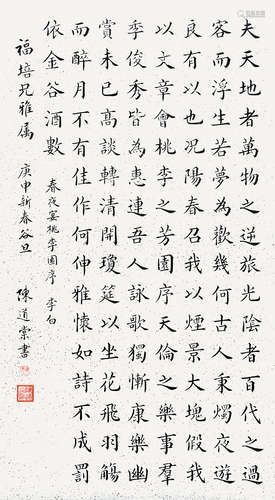 夫天地者萬物之逆旅光陰者百代之過
客而浮生若夢為歡幾何古人秉燭夜遊
良有以也況陽春召我以煙景大塊假我
以文章會桃李之芳園序天倫之樂事羣
季俊秀皆為惠連吾人詠歌獨慚康樂幽
賞未已高談轉清開瓊筵以坐花飛羽觴
而醉月不有佳作何伸雅懷如詩不成罰
依金谷酒數 春夜宴桃李園序 李白
福培兄雅属 庚申新春谷旦 陳道棠書